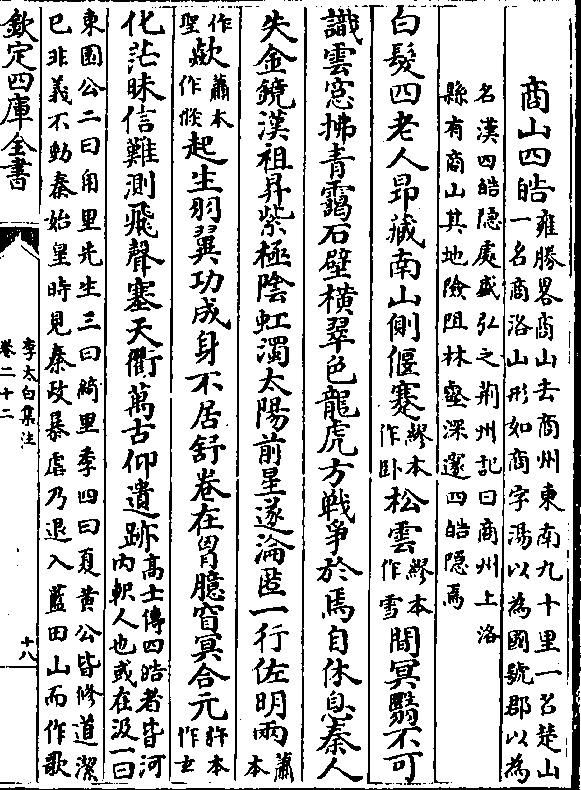 商山四皓雍勝畧商山去商州東南九十里一名楚山
一名商洛山形如商字湯以為國號郡以為
名漢四皓隠處盛弘之荆州記曰商州上洛
縣有商山其地險阻林壑深邃四皓隠焉
白髮四老人昻藏南山側偃蹇繆本作卧松雲繆本作雪間冥翳不可
識雲窓拂青靄石壁横翠色龍虎方戰争於焉自休息秦人
失金鏡漢祖昇紫極陰虹濁太陽前星遂淪匿一行佐明兩蕭本
作聖歘蕭本作倐起生羽翼功成身不居舒卷在胷臆窅冥合元許本作玄
化茫昧信難測飛聲塞天衢萬古仰遺跡高士傳四皓者皆河
内軹人也或在汲一曰
東園公二曰甪里先生三曰綺里季四曰夏黄公皆修道潔
已非義不動秦始皇時見秦政暴虐乃退入藍田山而作歌
欽定四庫全書
李太白集注
卷二十二
十八